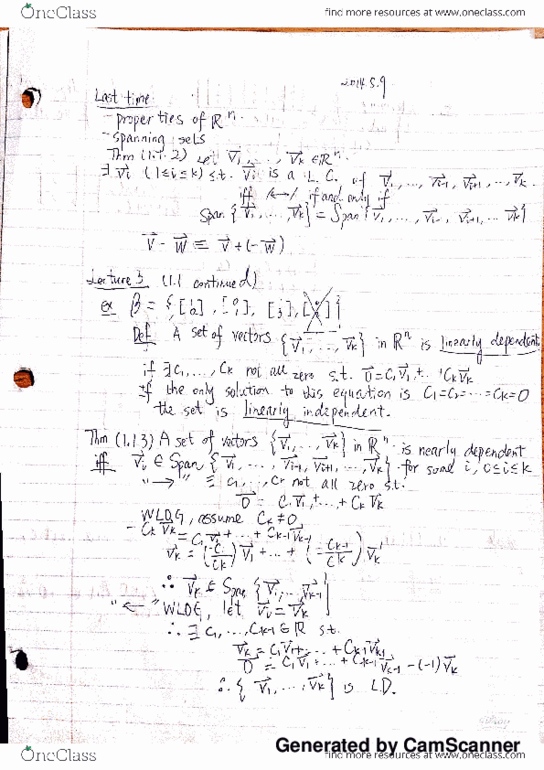 OneClass find more resources at www.oneclass.com
2014.5.9
Last time:
- properties of ℝⁿ.
- spanning sets
Thm (1.1.2) Let v⃗₁, ..., v⃗ₖ ∈ ℝⁿ.
∃ v⃗ᵢ (1≤i≤k) s.t. v⃗ᵢ is a L.C. of v⃗₁, ..., v⃗ᵢ₋₁, v⃗ᵢ₊₁, ..., v⃗ₖ.
iff /↔/ if and only if
Span {v⃗₁, ..., v⃗ₖ} = Span {v⃗₁, ..., v⃗ᵢ₋₁, v⃗ᵢ₊₁ ... v⃗ₖ}
v⃗ - w⃗ ≡ v⃗ + (-w⃗)
Lecture 3 (1.1 continued)
ex B = {
Def A set of vectors {v⃗₁, ..., v⃗ₖ} in ℝⁿ is linearly dependent
if ∃ c₁, ..., cₖ not all zero s.t. 0⃗ = c₁v⃗₁ + ... cₖv⃗ₖ
If the only solution to this equation is c₁=c₂=...=cₖ=0
the set is linearly independent.
Thm (1.1.3) A set of vectors {v⃗₁, ..., v⃗ₖ} in ℝⁿ is nearly dependent
iff v⃗ᵢ ∈ Span {v⃗₁, ..., v⃗ᵢ₋₁, v⃗ᵢ₊₁, ..., v⃗ₖ} for some i, 0≤i≤k
"→" ∃ c₁, ..., cₖ not all zero s.t.
0⃗ = c₁v⃗₁ + ... + cₖv⃗ₖ
WLOG, assume cₖ≠0
-cₖv⃗ₖ = c₁v⃗₁ + ... + cₖ₋₁v⃗ₖ₋₁
v⃗ₖ = (-c₁/cₖ) v⃗₁ + ... + (-cₖ₋₁/cₖ)
∴ v⃗ₖ ∈ Span {v⃗₁, ... v⃗ₖ₋₁}
"←" WLOG, let v⃗ᵢ = v⃗ₖ
∴ ∃ c₁, ..., cₖ₋₁ ∈ ℝ s.t.
v⃗ₖ = c₁v⃗₁ + ... + cₖ₋₁v⃗ₖ₋₁
0⃗ = c₁v⃗₁ + ... + cₖ₋₁v⃗ₖ₋₁ - (-1)v⃗ₖ
∴ {v⃗₁, ..., v⃗ₖ} is L.D.
Generated by CamScanner
OneClass find more resources at www.oneclass.com